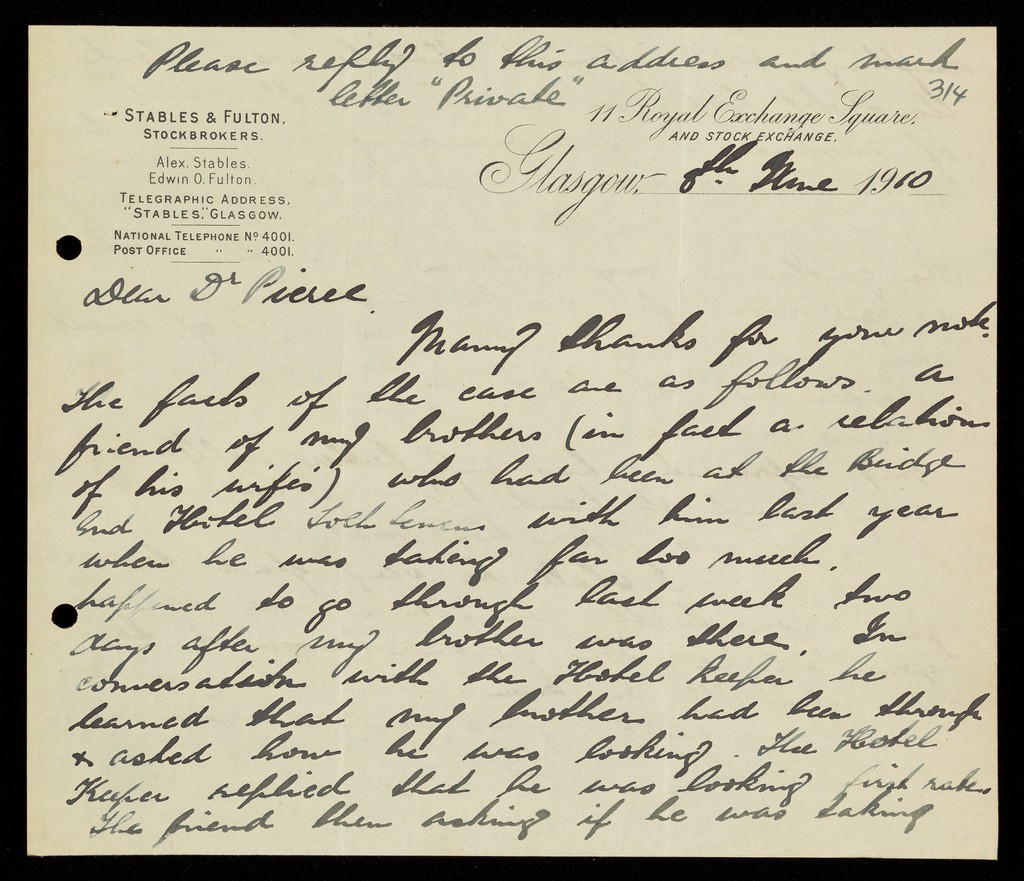 Please reply to this address and mark
letter "Private"
314
STABLES & FULTON,
STOCKBROKERS.
Alex. Stables.
Edwin O. Fulton.
TELEGRAPHIC ADDRESS,
"STABLES," GLASGOW.
NATIONAL TELEPHONE Nº 4001.
POST OFFICE " " 4001.
11 Royal Exchange Square,
AND STOCK EXCHANGE,
Glasgow, 8th June 1910
Dear Dr Pierce
Many thanks for your note.
The facts of the case are as follows. A
friend of my brothers (in fact a relation
of his wife's) who had been at the Bridge
End Hotel Loch with him last year
when he was taking far too much,
happened to go through last week two
days after my brother was there. In
conversation with the Hotel Keeper he
learned that my brother had been through
& asked how he was looking. The Hotel
Keeper replied that he was looking first rate.
The friend then asking if he was taking